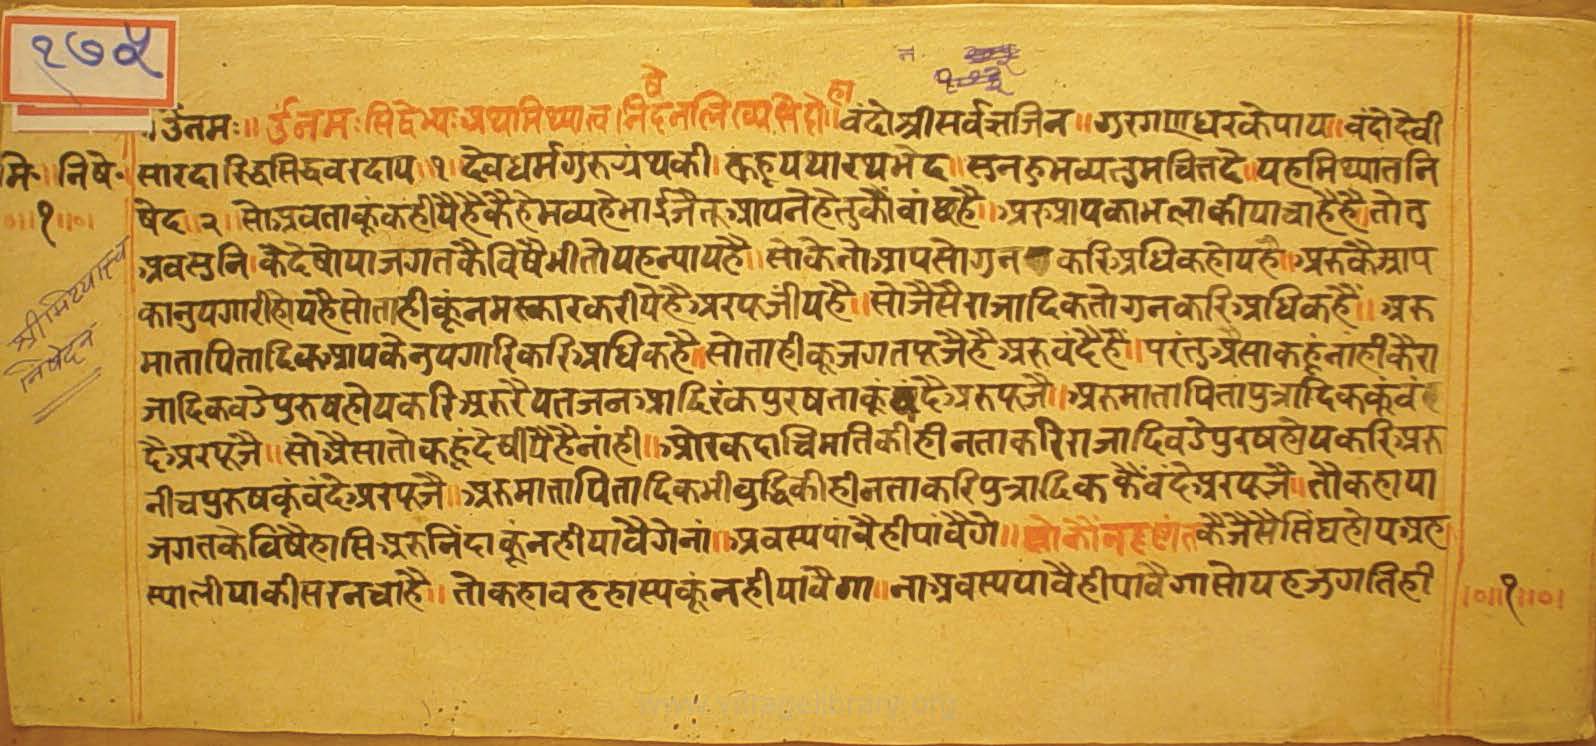 १७५
न.
।उँनमः॥ उँनमः सिद्धेभ्यः अथ मिथ्यात्व निषेदन लिख्यते दोहा॥ वंदो श्री सर्वज्ञ जिन॥ गुर गणधर के पाय॥ वंदो देवी
मि॰ निषे॰
सारदा रिद्ध सिद्ध वरदाय॥१॥ देव धर्म गुरु ग्रंथ की। कहू यथारथ भेद॥ सुन हु भव्य तुम चित्त दै॥ यह मिथ्यात नि
॥०॥१॥०॥
षेद॥२॥ सो अवताकूं कहीयै है कै हे भव्य हे भाई जै तू आपने हेतु कौं वांछै है॥ अरु आपका भला कीया चाहै है॥ तो तु
अव सुनि। कै देषो या जगत कै विषै भी तो यह न्याय है॥ सो के तो आप सो गुन करि अधिक होय है॥ अरु कै आप
का नुपगारी होय है सो ताही कूं नमस्कार करीये है अर पजीय है॥ सो जैसै राजादिक तो गुन करि अधिक हैं॥ अरु
माता पितादिक आप के नुपगारि करि अधिक है॥ सो ताही कू जगत पूजै है अरु वंदै है॥ परंतु अैसा कहूं नांही कै रा
श्री मिथ्यात्व
निषेदन
जादिक वडे पुरुष होय करि अरु रैयत जन आदि रंक पुरष ताकूं वंदै अरु पूजै॥ अरु माता पिता पुत्रादिक कूं वं
दै अर पूजै॥ सो अैसा तो कहूं देषीयै है नांही॥ ओर कदाचि मति की हीनता करि राजादि वडे पुरष होय करि अरु
नीच पुरुष कूं वंदे अर पूजै॥ अरु माता पितादिक भी वुद्धि की हीनता करि पुत्रादिक कै वंदे अर पूजै॥ तौ कहा या
जगत के विषै हासि अरु निंदा कूं नही पावैगे नां॥ अवस्य पावै ही पांवैगे॥ कै जैसै सिंघ होय अरु
स्याली या की सरन चाहै॥ तो कहा वह हास्य कूं नही पावैगा॥ ना अवस्य पावै ही पावैगा सो यह जगति ही
॥०॥१॥०॥